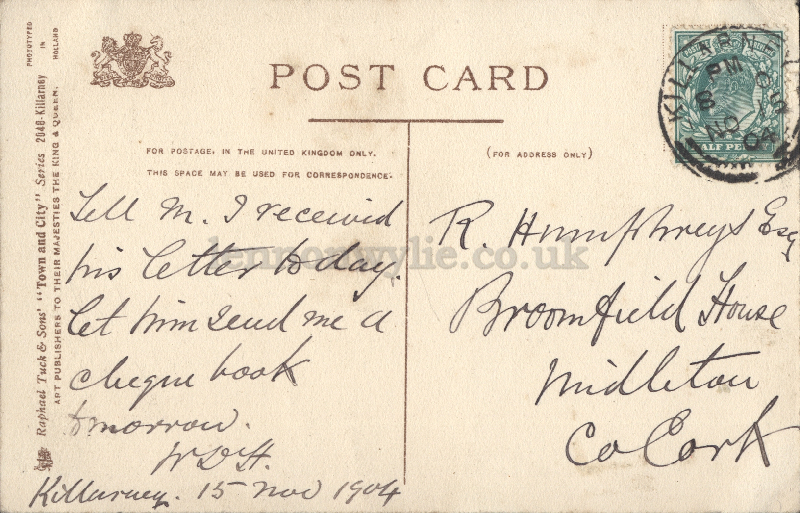 POST CARD
FOR POSTAGE, IN THE UNITED KINGDOM ONLY.
THIS SPACE MAY BE USED FOR CORRESPONDENCE.
(FOR ADDRESS ONLY)
Tell M. I received
his letter to day.
Let him send me a
cheque book
tomorrow.
W D H.
Killarney. 15 Nov 1904
R. Humphreys Esq
Broomfield House
Midleton
Co Cork
KILLARNEY
PM
NO 15
04
POSTAGE & REVENUE
HALF PENNY
Raphael Tuck & Sons' "Town and City" Series 2048-Killarney
ART PUBLISHERS TO THEIR MAJESTIES THE KING & QUEEN.
PHOTOTYPED
IN
HOLLAND
lennonwylie.co.uk